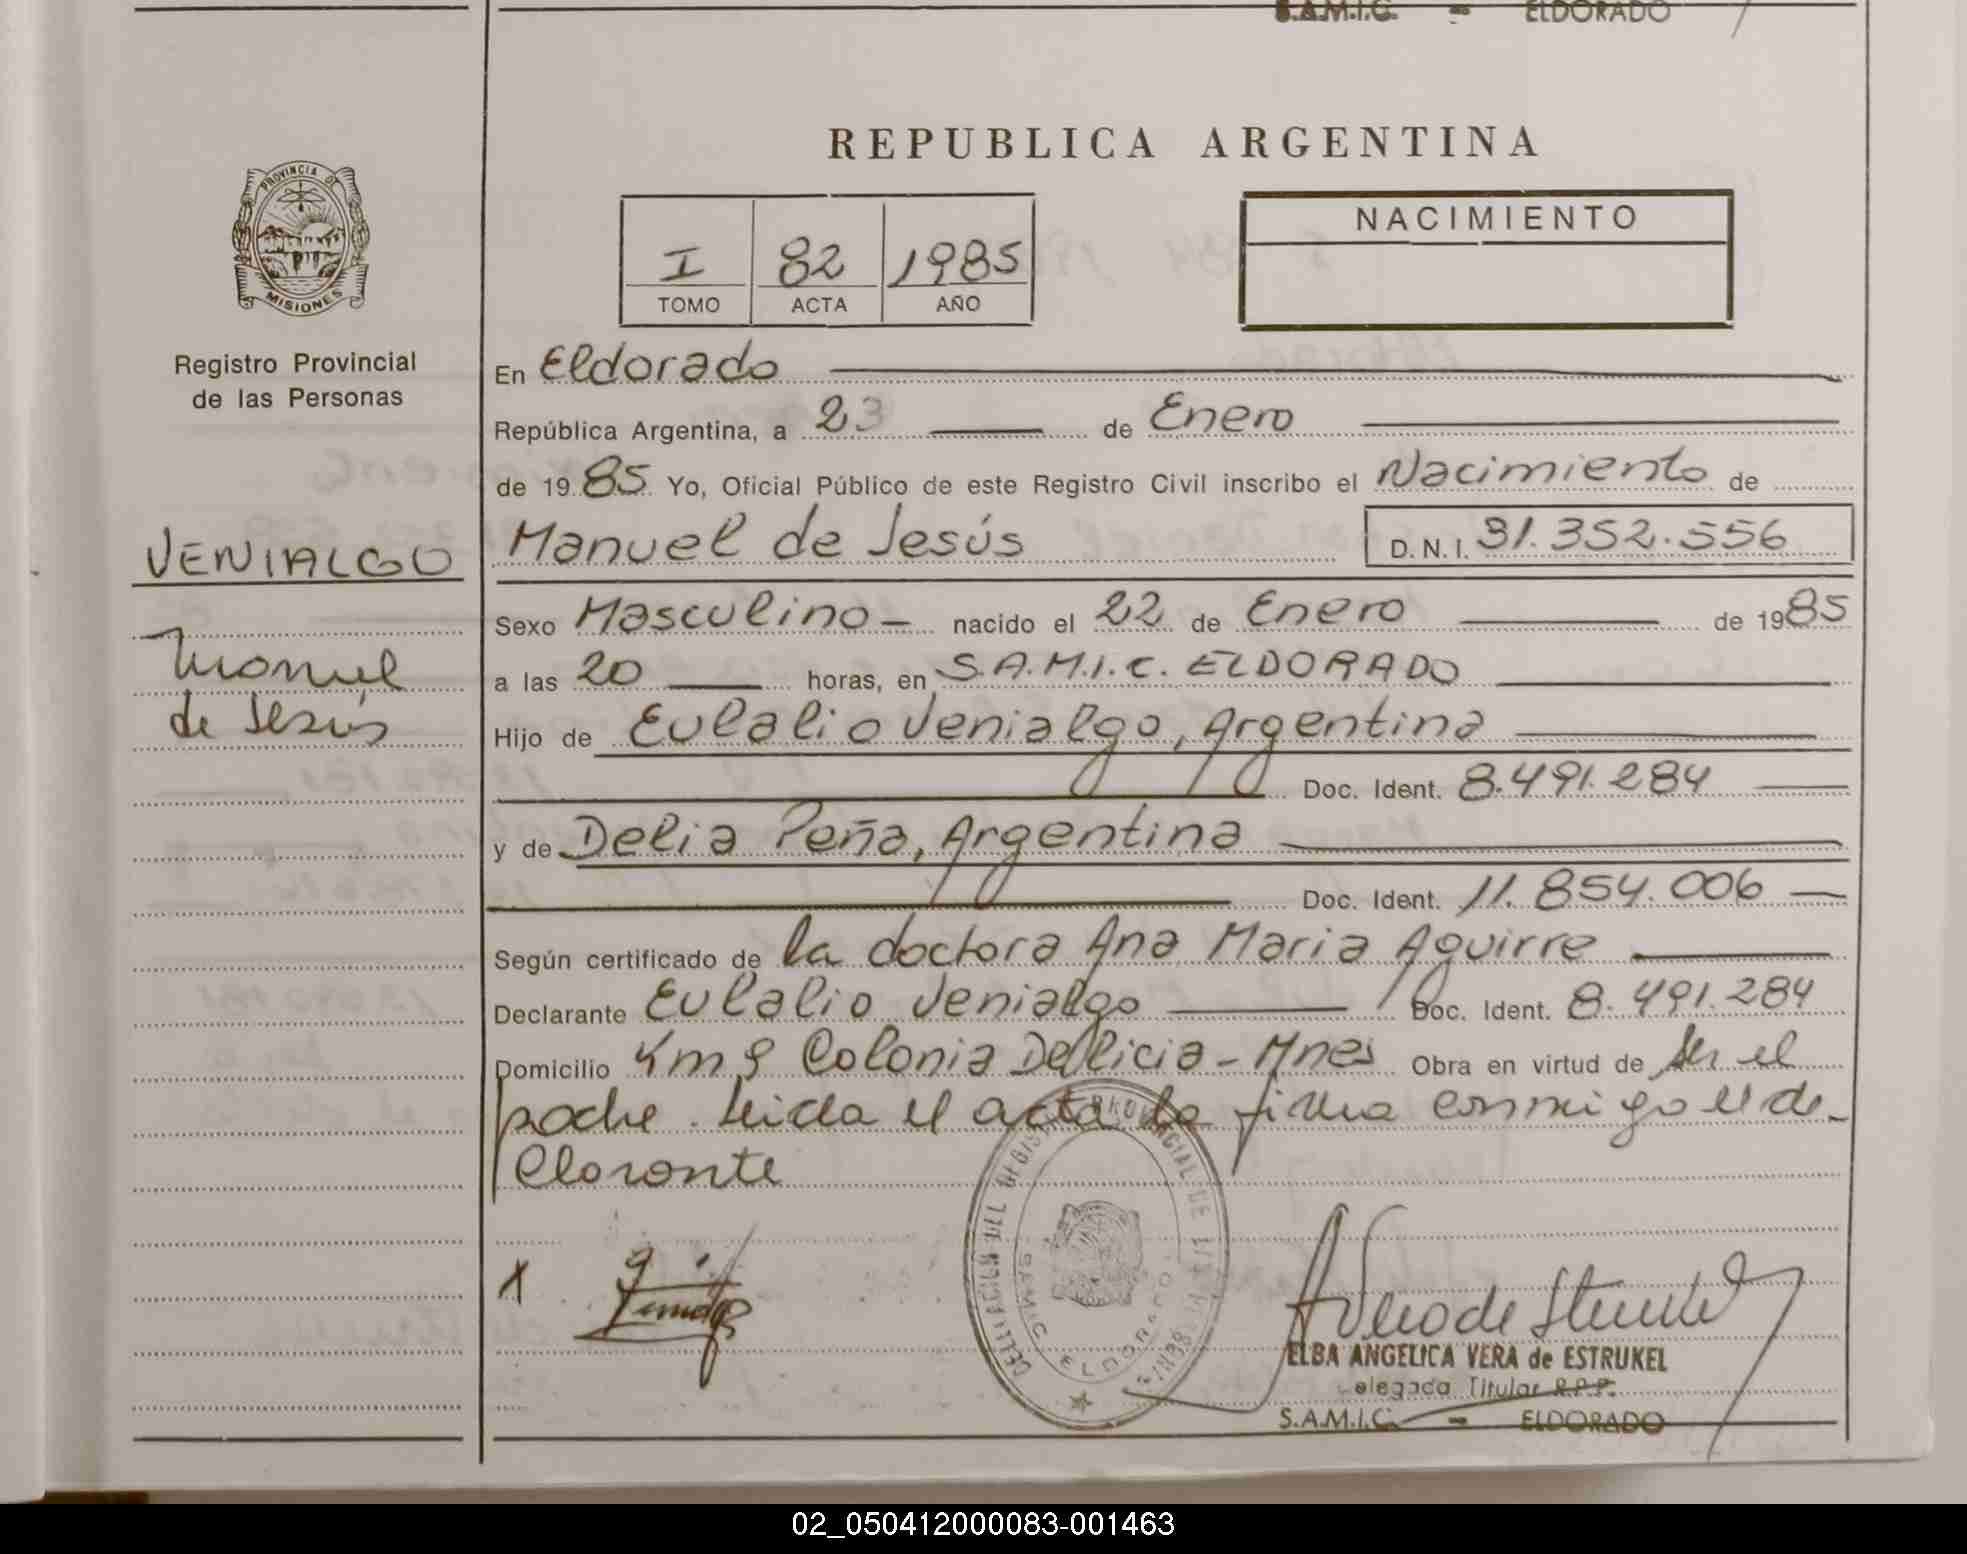 S.A.M.I.C. - ELDORADO
REPUBLICA ARGENTINA
PROVINCIA DE
MISIONES
Registro Provincial
de las Personas
I 82 1985
TOMO ACTA AÑO
NACIMIENTO
En Eldorado
República Argentina, a 23 de Enero
de 1985 Yo, Oficial Público de este Registro Civil inscribo el Nacimiento de
VENIALGO
Manuel de Jesús D.N.I. 31.352.556
Manuel
de Jesús
Sexo Masculino nacido el 22 de Enero de 1985
a las 20 horas, en S.A.M.I.C. ELDORADO
Hijo de Eulalio Venialgo, Argentina
Doc. Ident. 8.491.284
y de Delia Peña, Argentina
Doc. Ident. 11.854.006
Según certificado de la doctora Ana Maria Aguirre
Declarante Eulalio Venialgo Doc. Ident. 8.491.284
Domicilio Km 9 Colonia Delicia - Mnes Obra en virtud de ser el
padre. Leida el acta la firma conmigo el de-
clarante
X
DELEGACION DEL REGISTRO PROVINCIAL DE
SAMIC ELDORADO
ELBA ANGELICA VERA de ESTRUKEL
elegada Titular R.P.P.
S.A.M.I.C. - ELDORADO
02_050412000083-001463